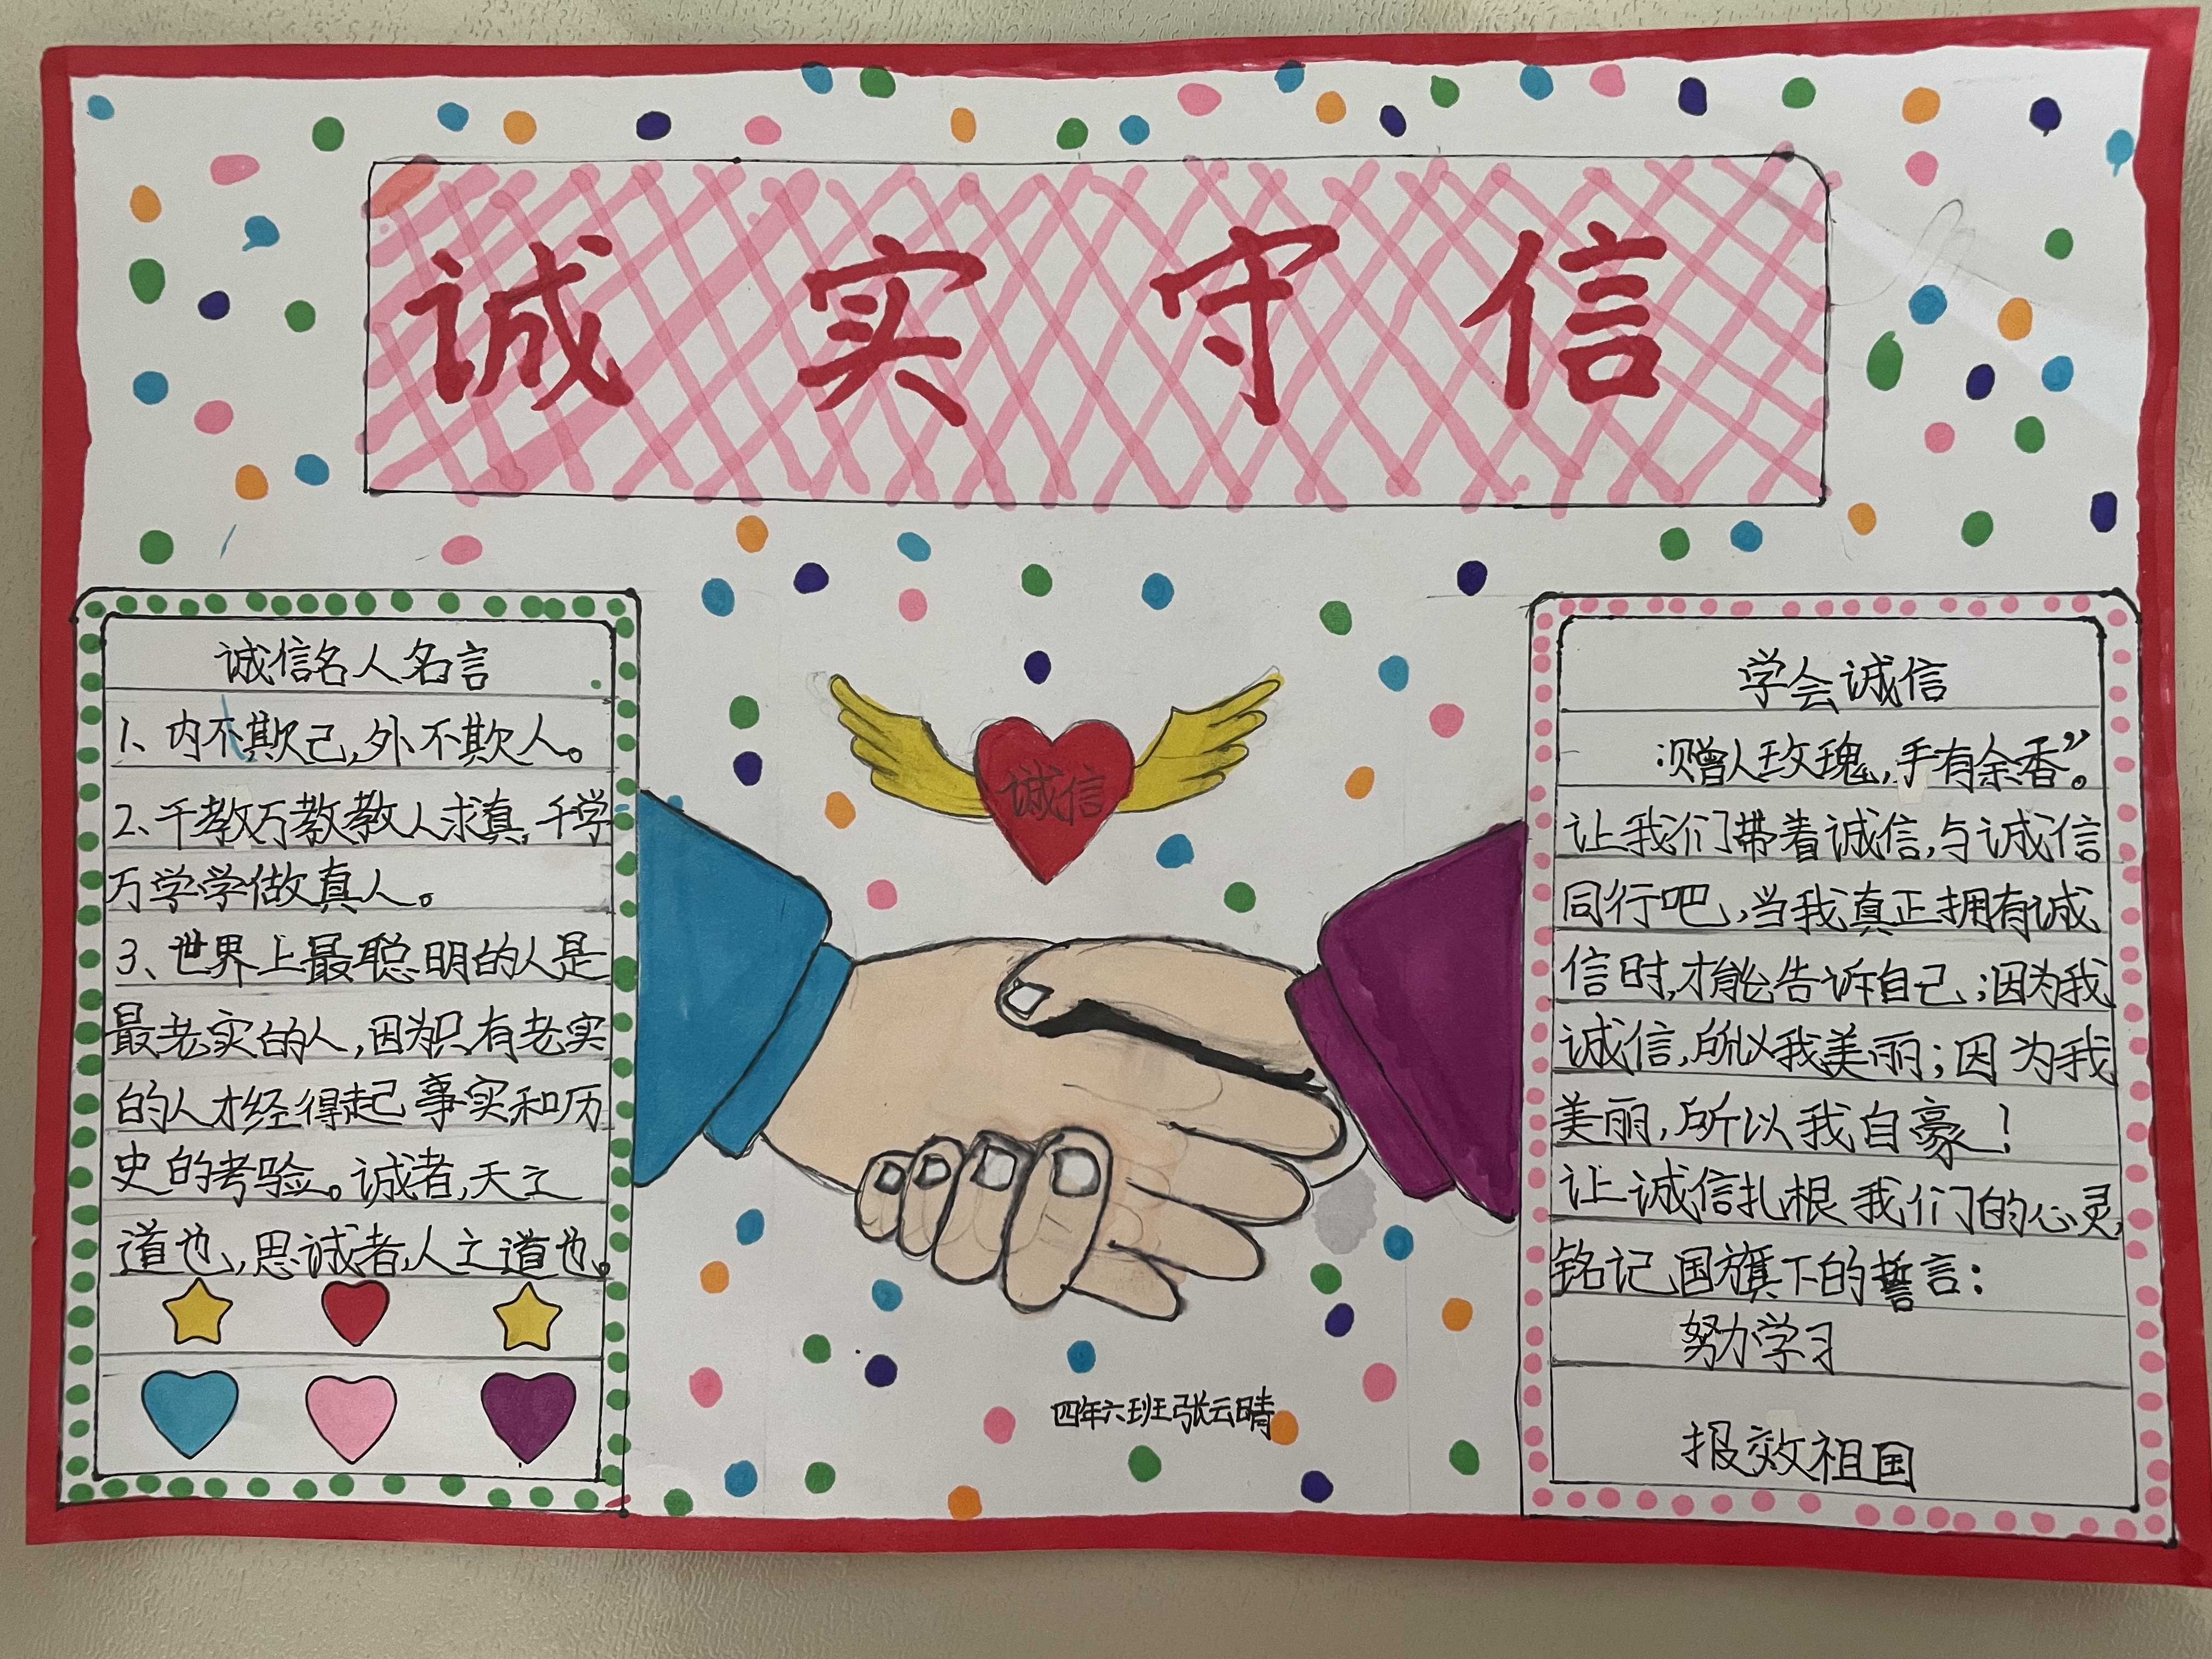 诚实守信
诚信名人名言
1、内不欺己,外不欺人。
2、千教万教教人求真,千学
万学学做真人。
3、世界上最聪明的人是
最老实的人,因为只有老实
的人才经得起事实和历
史的考验。诚者,天之
道也,思诚者,人之道也。
诚信
四年六班张云晴
学会诚信
“赠人玫瑰,手有余香”。
让我们带着诚信,与诚信
同行吧,当我真正拥有诚
信时,才能告诉自己;因为我
诚信,所以我美丽;因为我
美丽,所以我自豪!
让诚信扎根我们的心灵,
铭记国旗下的誓言:
努力学习
报效祖国